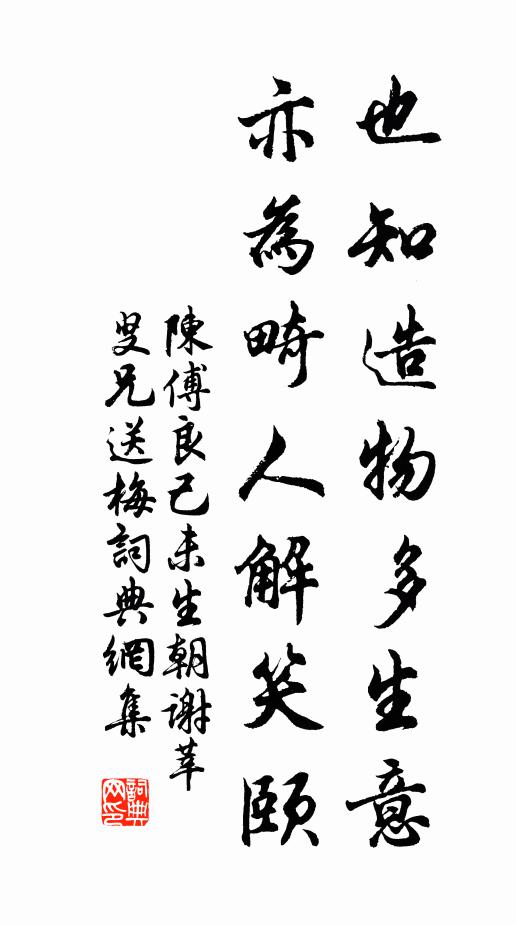 也知造物多生意
亦為畸人解笑頤
陳傅良己未生朝謝莘
叟兄送梅詞典網集
詞典
网印